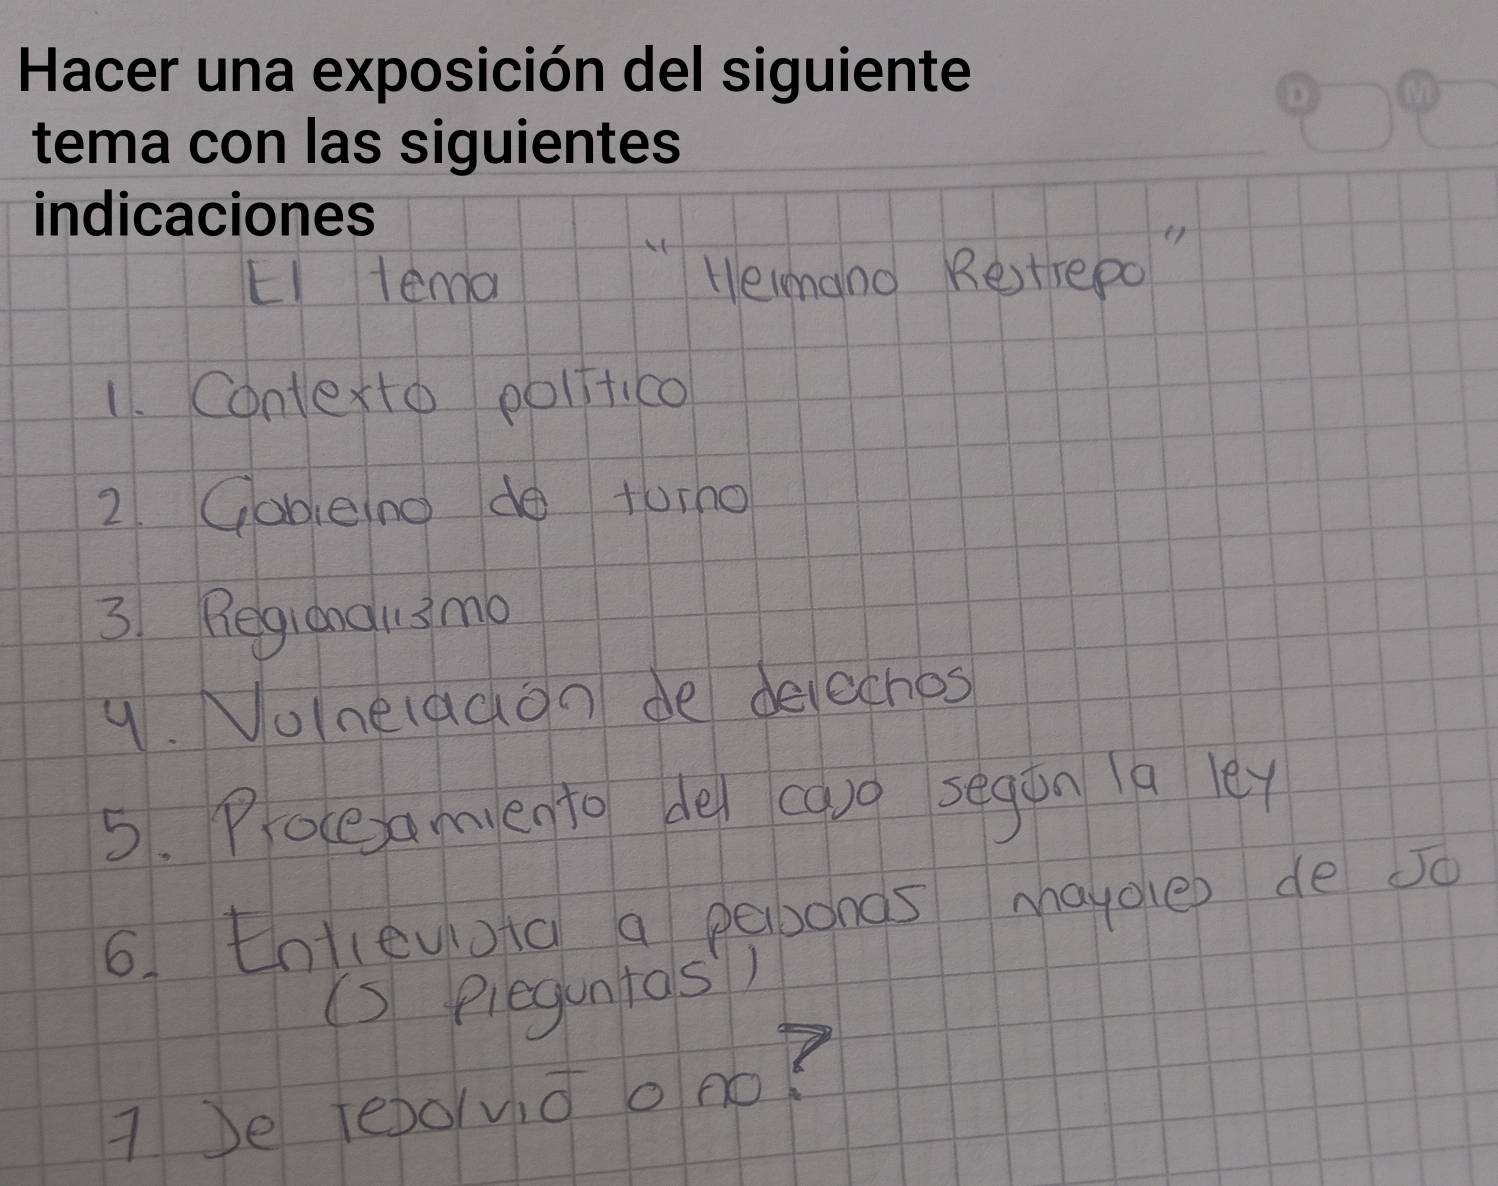 Hacer una exposición del siguiente
tema con las siguientes
indicaciones
D M
El tema "Hermano Restrepo"
1. Contexto político
2. Gobierno de turno
3. Regionalismo
4. Vulneración de derechos
5. Procesamiento del caso según la ley
6. Entrevista a personas mayores de 50
(5 Preguntas)
7. Se resolvió o no?